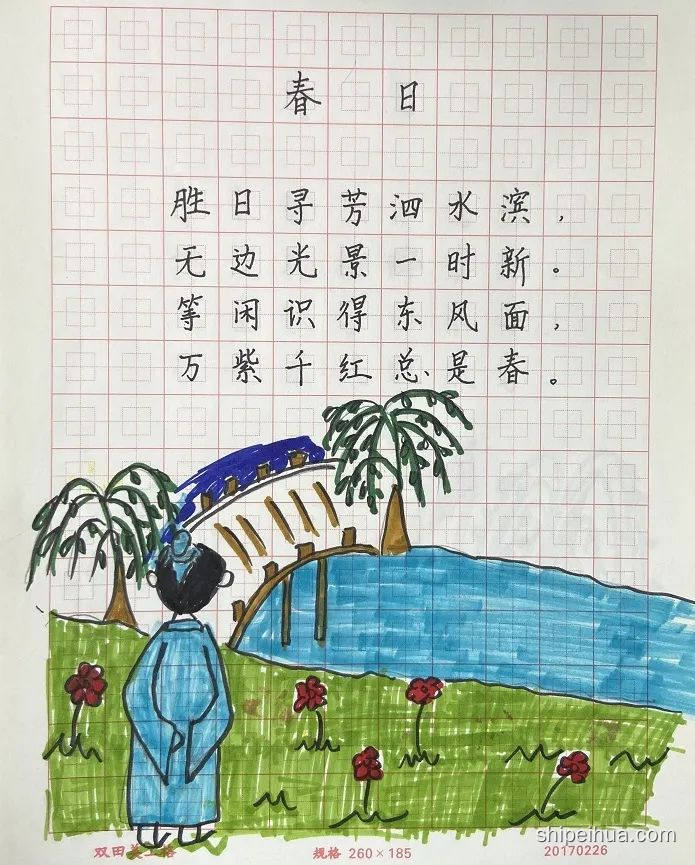 春日
胜日寻芳泗水滨，
无边光景一时新。
等闲识得东风面，
万紫千红总是春。
shipeihua.com
双田美工格 规格 260×185 20170226